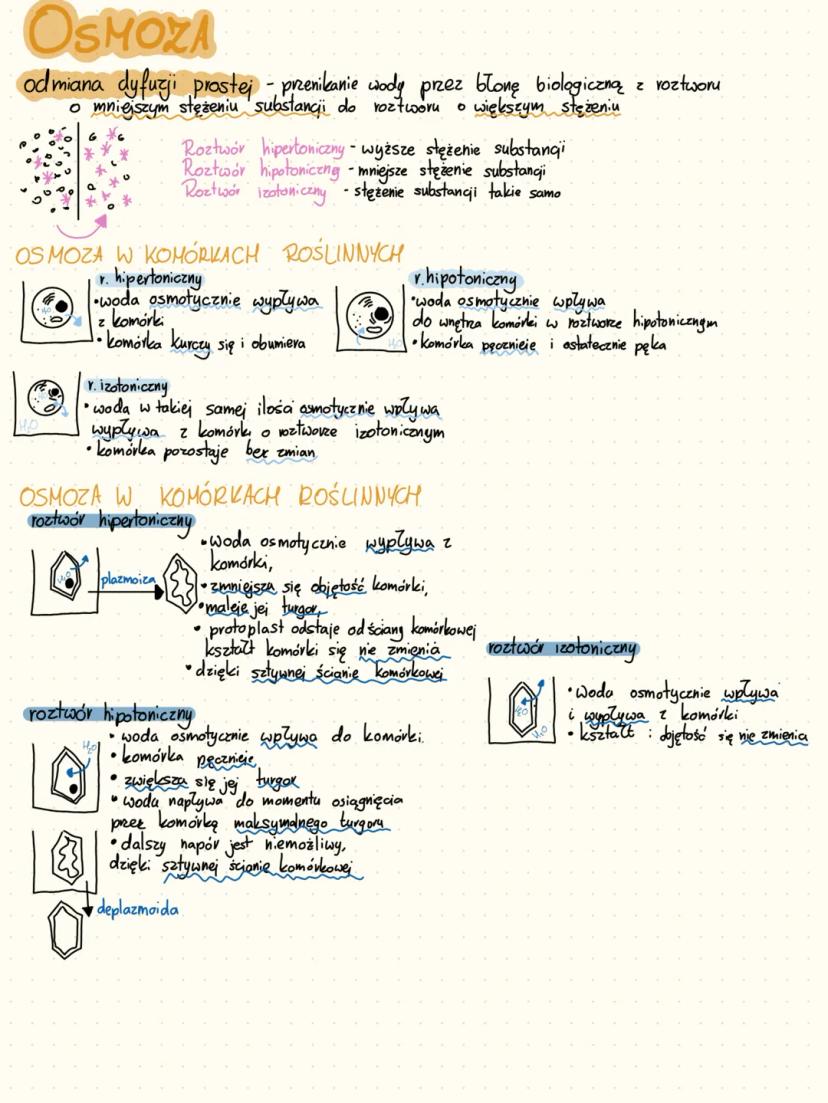 OSMOZA
odmiana dyfuzji prostej - przenikanie wody przez błonę biologiczną z roztworu
o mniejszym stężeniu substancji do roztworu o większym stężeniu
Roztwór hipertoniczny - wyższe stężenie substancji
Roztwór hipotoniczny - mniejsze stężenie substancji
Roztwór izotoniczny - stężenie substancji takie samo
OSMOZA W KOMÓRKACH ROŚLINNYCH
r. hipertoniczny
•woda osmotycznie wypływa
z komórki
• komórka kurczy się i obumiera
H₂O
r. hipotoniczny
•woda osmotycznie wpływa
do wnętrza komórki w roztworze hipotonicznym
• komórka pęcznieje i ostatecznie pęka
H₂O
r. izotoniczny
• woda w takiej samej ilości osmotycznie wpływa
wypływa z komórki o roztworze izotonicznym
• komórka pozostaje bez zmian
H₂O
OSMOZA W KOMÓRKACH ROŚLINNYCH
roztwór hipertoniczny
•woda osmotycznie wypływa z
komórki,
• zmniejsza się objętość komórki,
•maleje jej turgor,
• protoplast odstaje od ściany komórkowej
kształt komórki się nie zmienia
•dzięki sztywnej ścianie komórkowej
H₂O
plazmoiza
roztwór izotoniczny
•Woda osmotycznie wpływa
i wypływa z komórki
• kształt i objętość się nie zmienia
H₂O
H₂O
roztwór hipotoniczny
• woda osmotycznie wpływa do komórki.
• komórka pęcznieje,
• zwiększa się jej turgor
• woda napływa do momentu osiągnięcia
przez komórkę maksymalnego turgoru
• dalszy napór jest niemożliwy,
dzięki sztywnej ścianie komórkowej
H₂O
deplazmoida